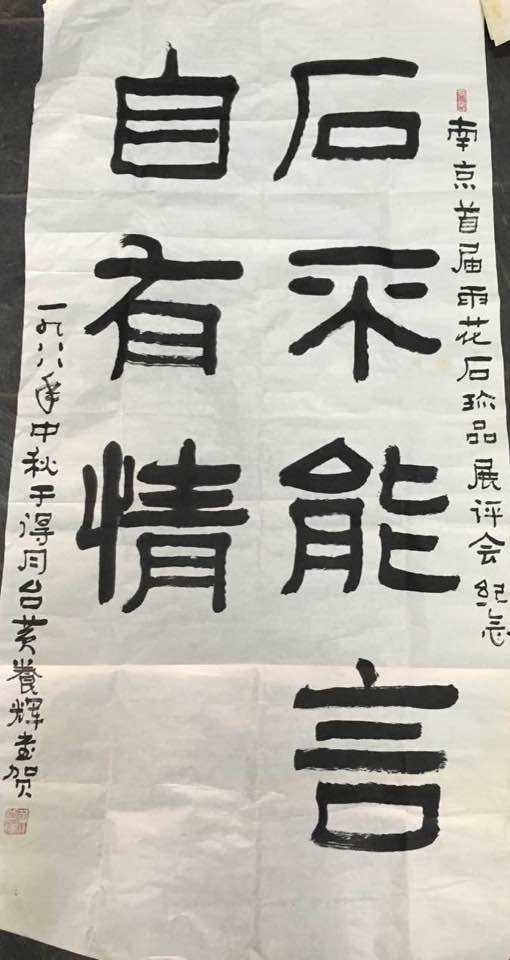 南京首届雨花石珍品展评会纪念
石不能言
自有情
一九八八年中秋于得月台黄养辉书贺